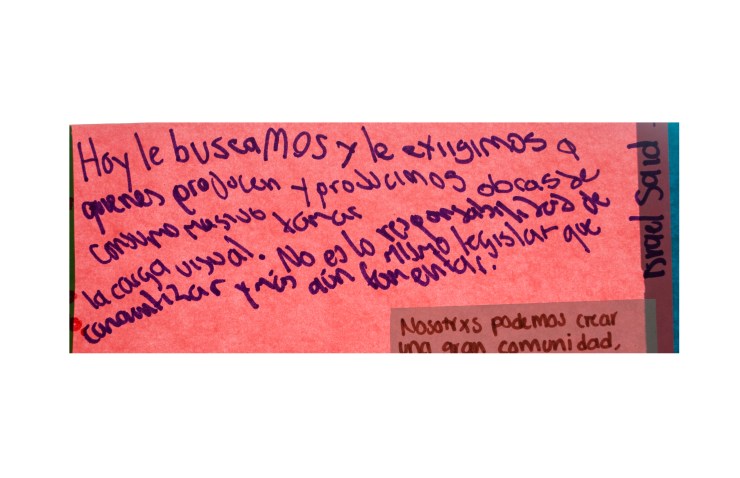 Hoy le buscaMOS y le exiigimos a
quienes producen y producimos obras de
consumo masivo tomar
la carga visual. No es lo responsabilidad de
canavalizar y más aún mismo legislar que
fomentar.
Israel Said
Nosotrxs podemos crear
una gran comunidad,